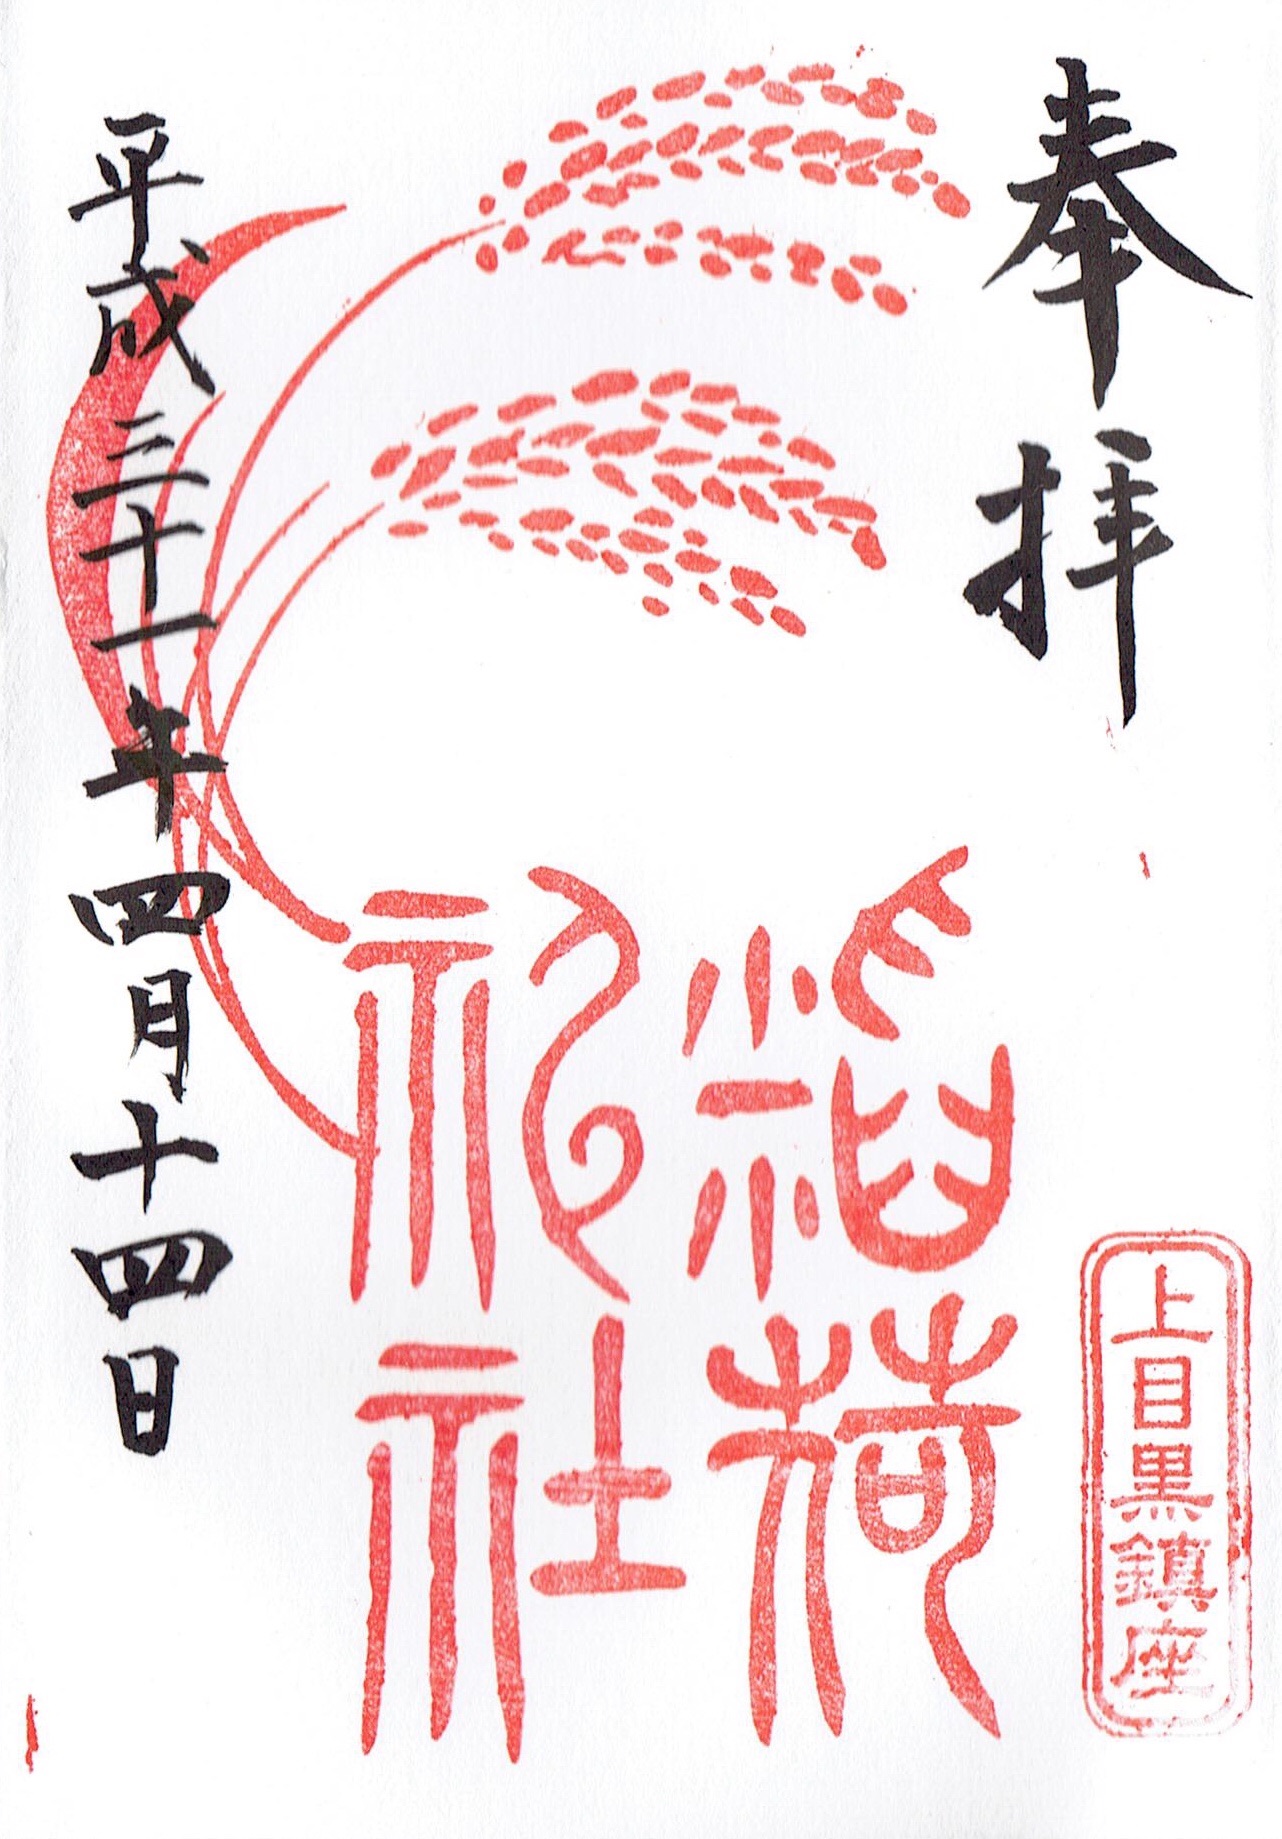 奉拝
上目黒鎮座
稲荷
神社
平成三十一年四月十四日